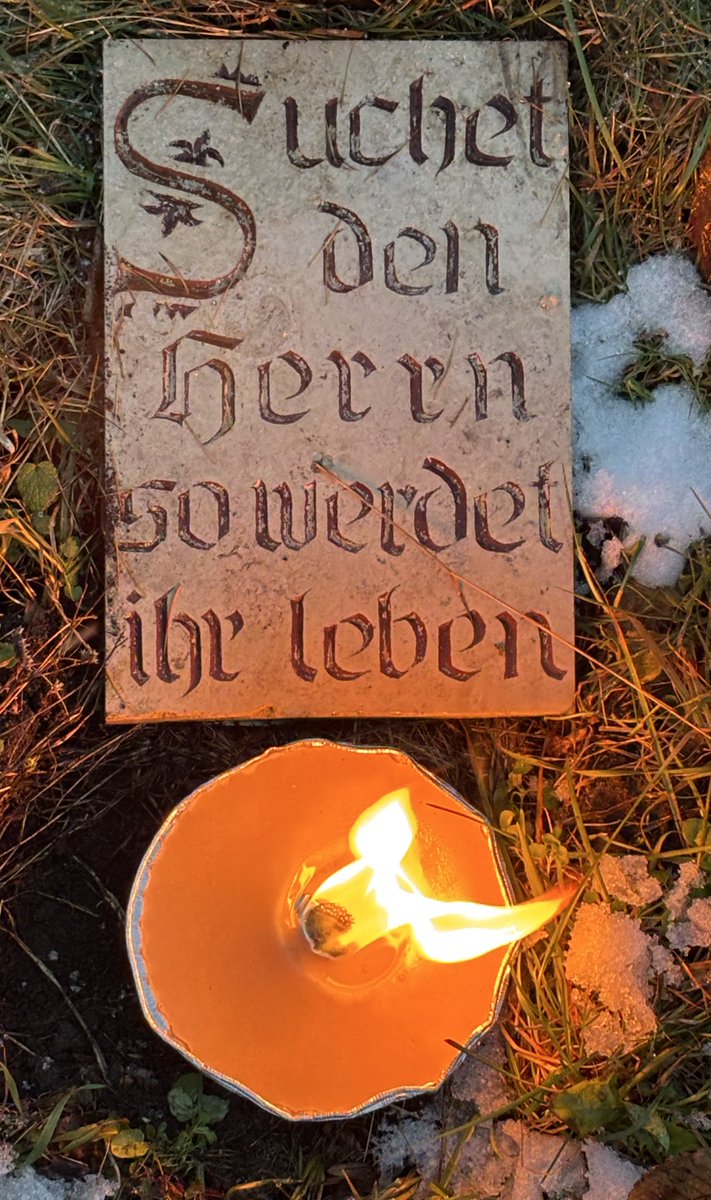 Suchet
den
Herrn
so werdet
ihr leben